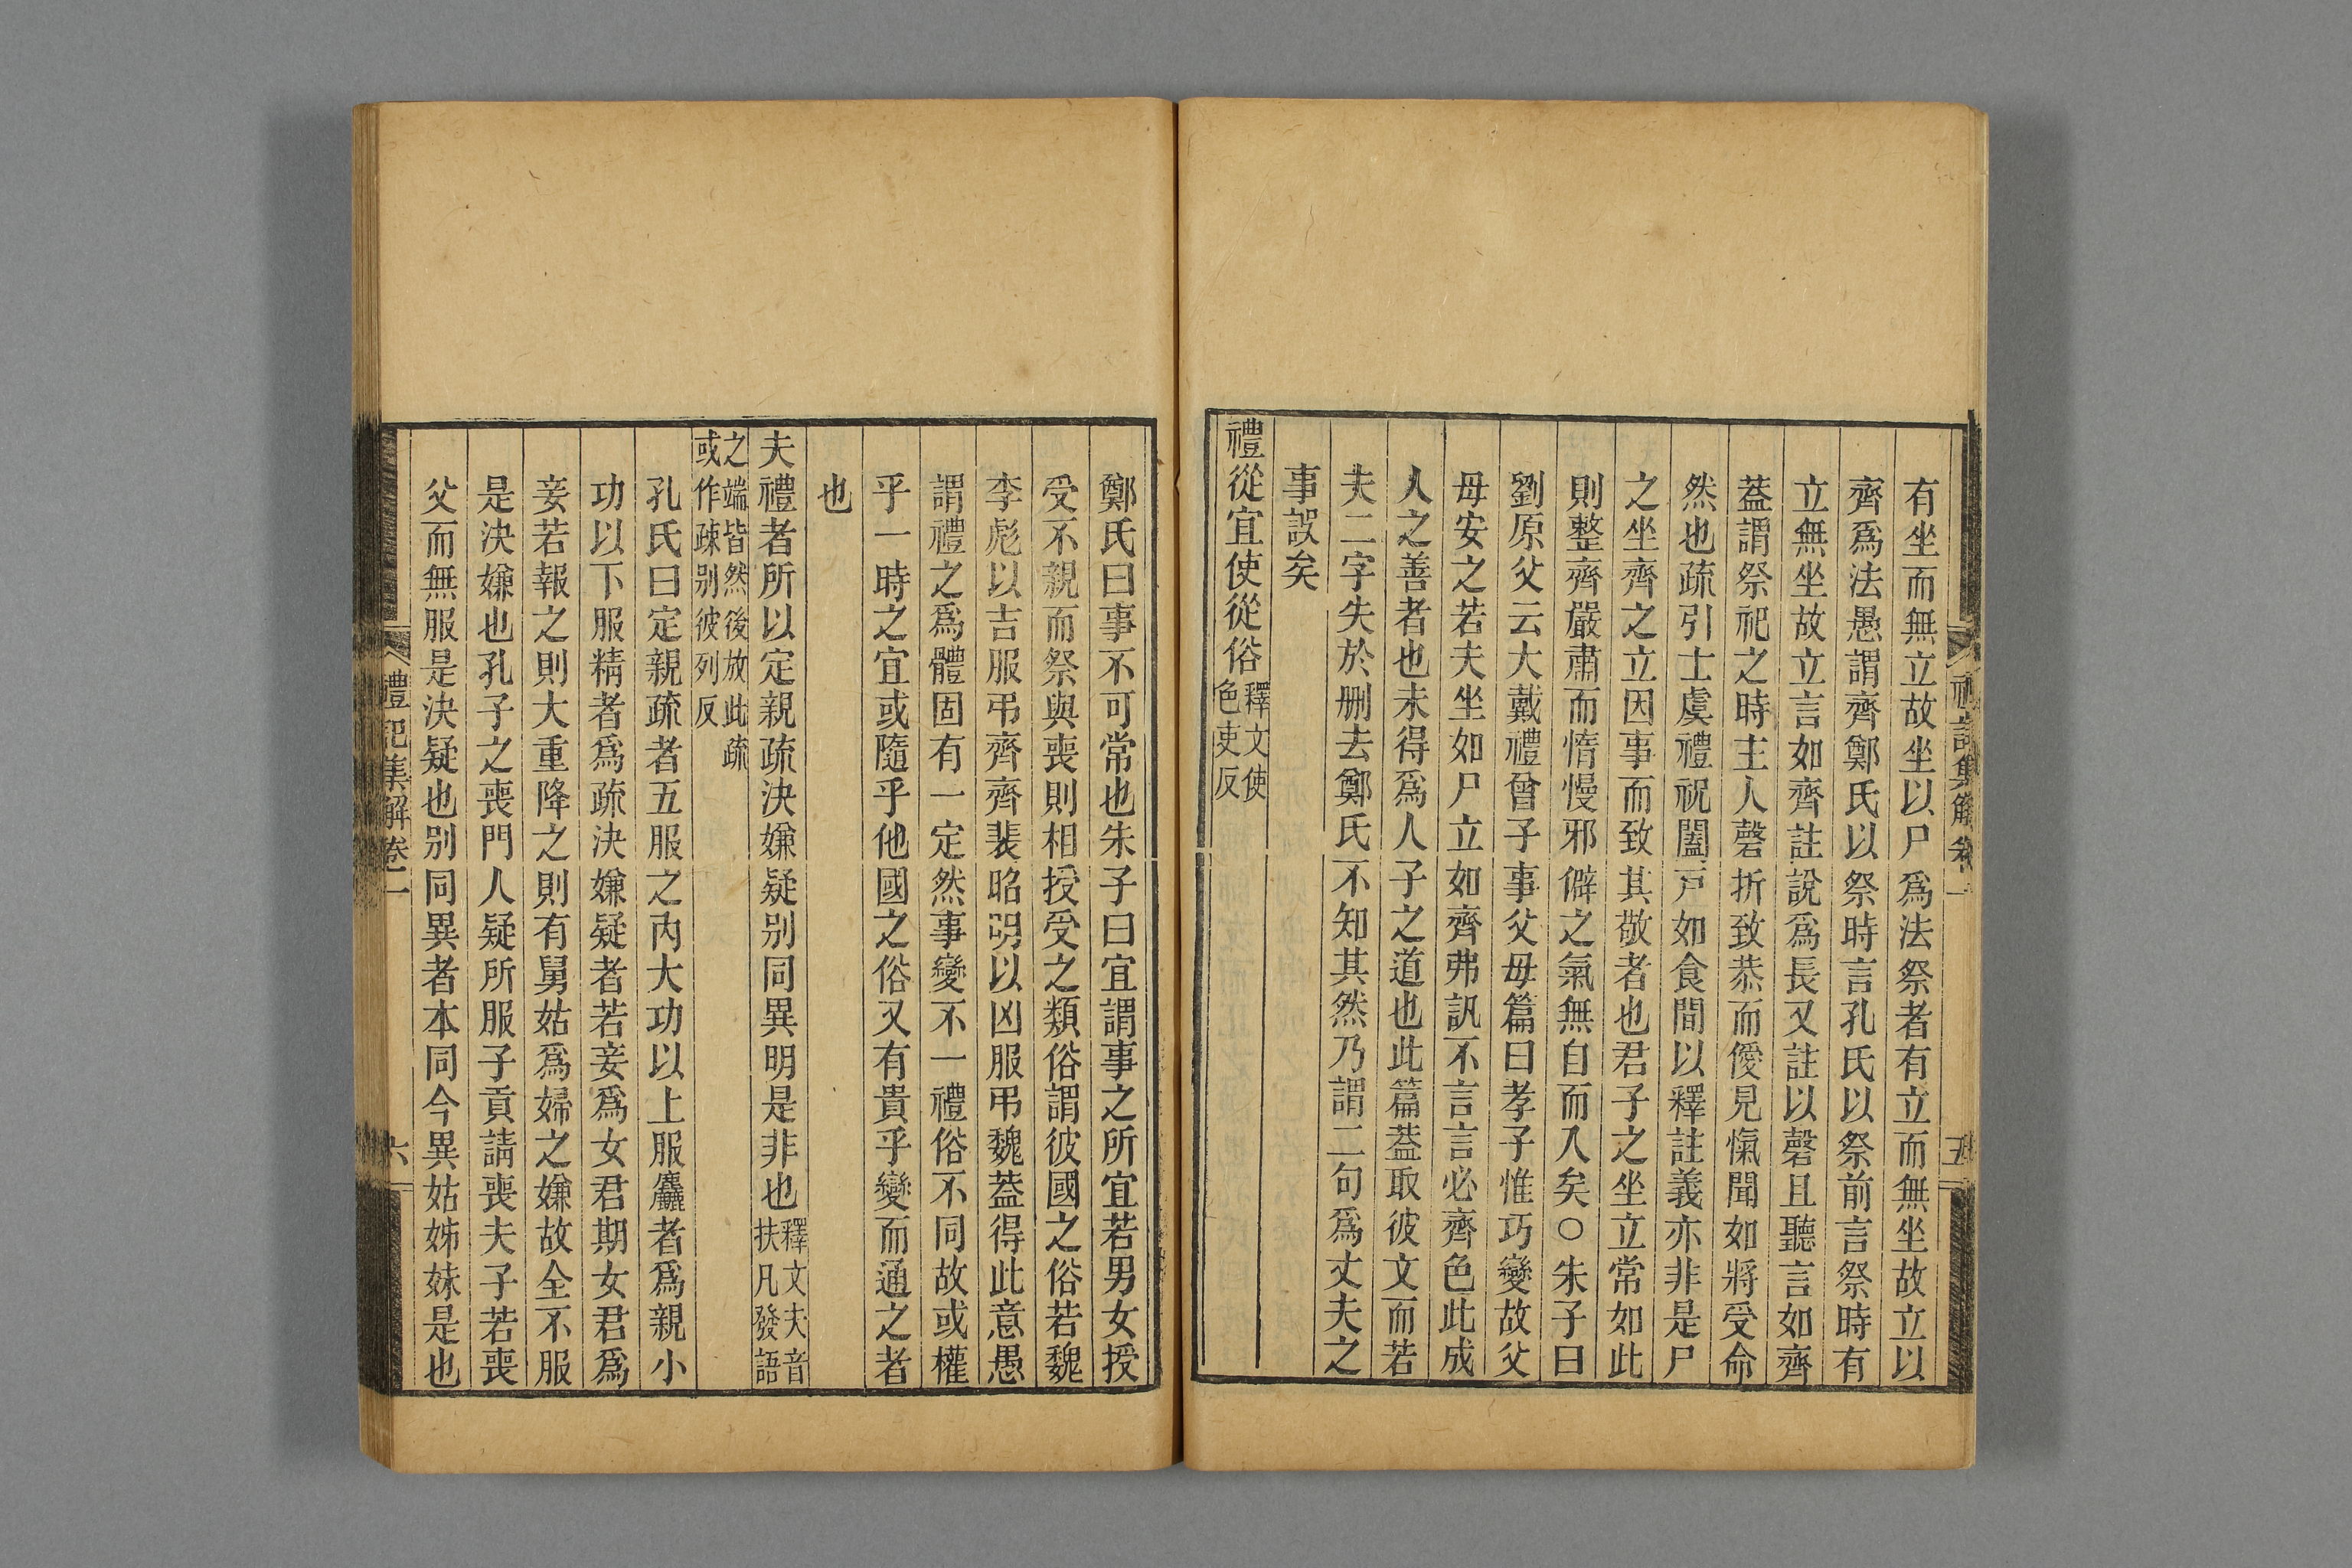 禮記集解卷一
五
有坐而無立故坐以尸爲法祭者有立而無坐故立以
齊爲法愚謂齊鄭氏以祭時言孔氏以祭前言祭時有
立無坐故立言如齊註說爲長又註以磬且聽言如齊
蓋謂祭祀之時主人磬折致恭而僾見愾聞如將受命
然也疏引士虞禮祝闔戸如食間以釋註義亦非是尸
之坐齊之立因事而致其敬者也君子之坐立常如此
則整齊嚴肅而惰慢邪僻之氣無自而入矣○朱子曰
劉原父云大戴禮曾子事父母篇曰孝子惟巧變故父
母安之若夫坐如尸立如齊弗訊不言言必齊色此成
人之善者也未得爲人子之道也此篇蓋取彼文而若
夫二字失於删去鄭氏不知其然乃謂二句爲丈夫之
事誤矣
禮從宜使從俗釋文使色吏反
鄭氏曰事不可常也朱子曰宜謂事之所宜若男女授
受不親而祭與喪則相授受之類俗謂彼國之俗若魏
李彪以吉服弔齊齊裴昭明以凶服弔魏蓋得此意愚
謂禮之爲體固有一定然事變不一禮俗不同故或權
乎一時之宜或隨乎他國之俗又有貴乎變而通之者
也
夫禮者所以定親疏決嫌疑别同異明是非也釋文夫音扶凡發語
之端皆然後放此疏或作疎别彼列反
孔氏曰定親疏者五服之內大功以上服麤者爲親小
功以下服精者爲疏決嫌疑者若妾爲女君期女君爲
妾若報之則大重降之則有舅姑爲婦之嫌故全不服
是決嫌也孔子之喪門人疑所服子貢請喪夫子若喪
父而無服是決疑也别同異者本同今異姑姊妹是也
禮記集解卷一
六